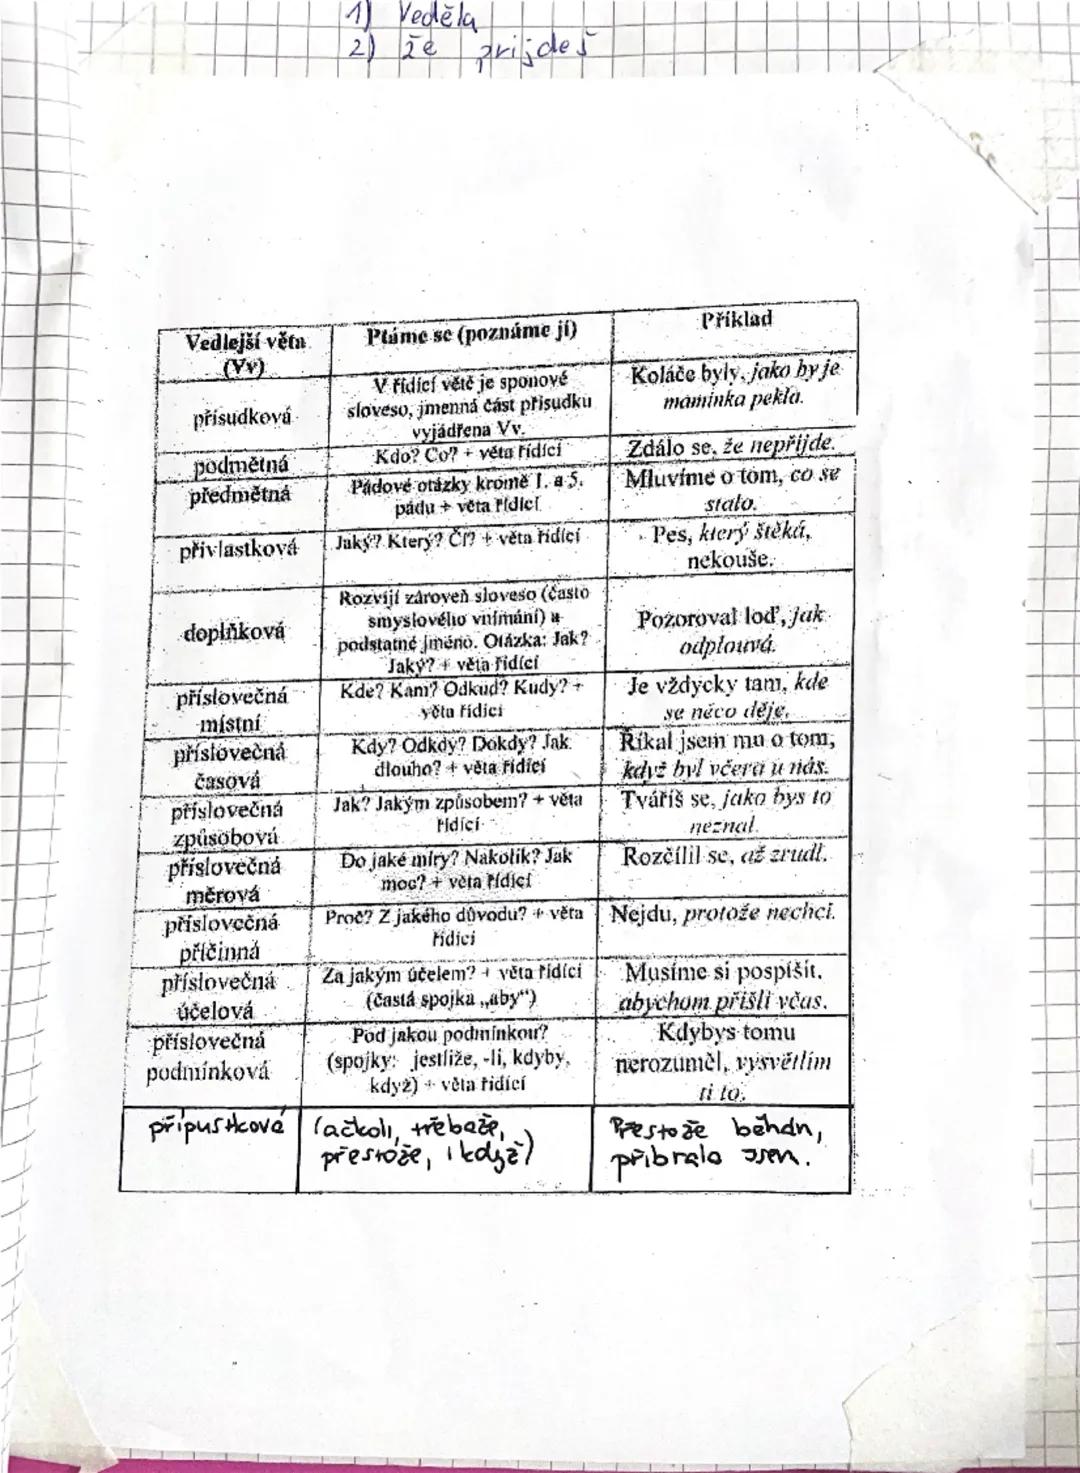 1) Věděla
2) že přijdeš
Vedlejší věta
(Vv)
Ptáme se (poznáme ji)
Příklad
přísudková
V řídící větě je sponové
sloveso, jmenná část přísudku
vyjádřena Vv.
Koláče byly, jako by je
maminka pekla.
podmětná
Kdo? Co? + věta řídící
Zdálo se, že nepřijde.
předmětná
Pádové otázky kromě 1. a 5.
pádu + věta řídící
Mluvíme o tom, co se
stalo.
přívlastková
Jaký? Který? Čí? + věta řídící
Pes, který štěká,
nekouše.
doplňková
Rozvíjí zároveň sloveso (často
smyslového vnímání) a
podstatné jméno. Otázka: Jak?
Jaký? + věta řídící
Pozoroval loď, jak
odplouvá.
příslovečná
místní
Kde? Kam? Odkud? Kudy? +
věta řídící
Je vždycky tam, kde
se něco děje.
příslovečná
časová
Kdy? Odkdy? Dokdy? Jak
dlouho? + věta řídící
Říkal jsem mu o tom,
když byl včera u nás.
příslovečná
způsobová
Jak? Jakým způsobem? + věta
řídící
Tváříš se, jako bys to
neznal.
příslovečná
měrová
Do jaké míry? Nakolik? Jak
moc? + věta řídící
Rozčílil se, až zrudl.
příslovečná
příčinná
Proč? Z jakého důvodu? + věta
řídící
Nejdu, protože nechci.
příslovečná
účelová
Za jakým účelem? + věta řídící
(častá spojka „aby“)
Musíme si pospíšit,
abychom přišli včas.
příslovečná
podmínková
Pod jakou podmínkou?
(spojky: jestliže, -li, kdyby,
když) + věta řídící
Kdybys tomu
nerozuměl, vysvětlím
ti to.
přípustková
(ačkoli, třebaže,
přestože, i když)
Přestože běhám,
přibrala jsem.